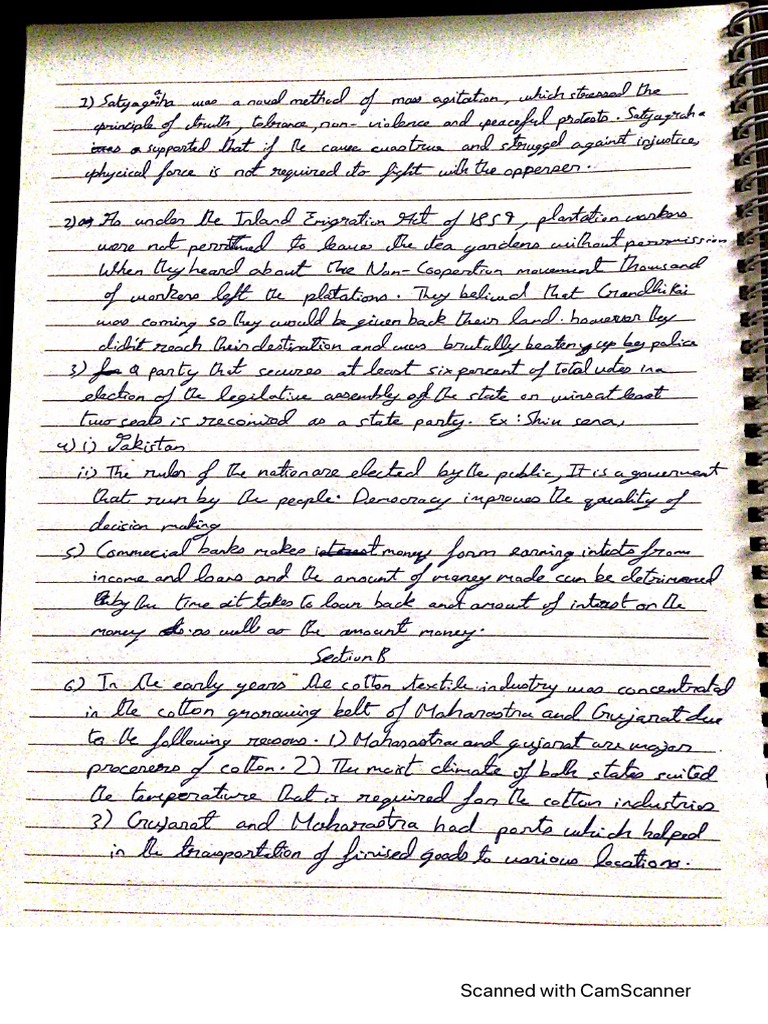 1) Satyagraha was a novel method of mass agitation, which stressed the
principle of truth, tolerance, non-violence and peaceful protests. Satyagraha
supported that if the cause was true and struggel against injustice,
physical force is not required to fight with the opperser.
2) As under the Inland Emigration Act of 1859, plantation workers
were not permitted to leave the tea gardens without permission
When they heard about the Non-Coopertion movement thousand
of workers left the platations. They belived that Grandhi Rai
was coming so they would be given back their land. however they
didn't reach their destination and was brutally beaten up by police
3) A party that secures at least six percent of total votes in a
election of the legislative assembly of the state or wins at least
two seats is reconized as a state party. Ex: Shiv sena,
4) i) Pakistan
ii) The rules of the nation are elected by the public, It is a government
that run by the people. Democracy improves the quality of
decision making
5) Commercial banks makes money form earning intests from
income and loans and the amount of money made can be detrimened
by the time it takes to loan back and amount of interst on the
money as well as the amount money.
Section B
6) In the early years the cotton textile industry was concentrated
in the cotton gronowing belt of Maharastra and Grujarat due
to the following reasons. 1) Maharastra and gujarat are major
procerers of cotton. 2) The moist climate of both states suited
the temperature that is required for the cotton industries
3) Grujarat and Maharastra had ports which helped
in the transportation of finised goods to various locations.
Scanned with CamScanner